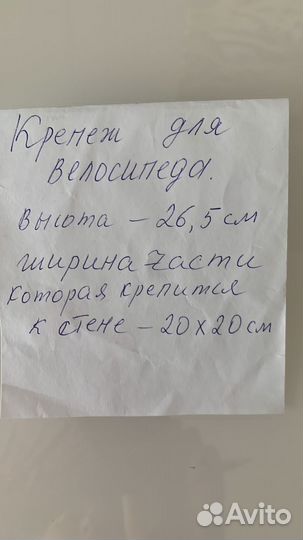 Крепеж для
велосипеда.
высота - 26,5 см
ширина части
которая крепится
к стене - 20 х 20 см
Avito